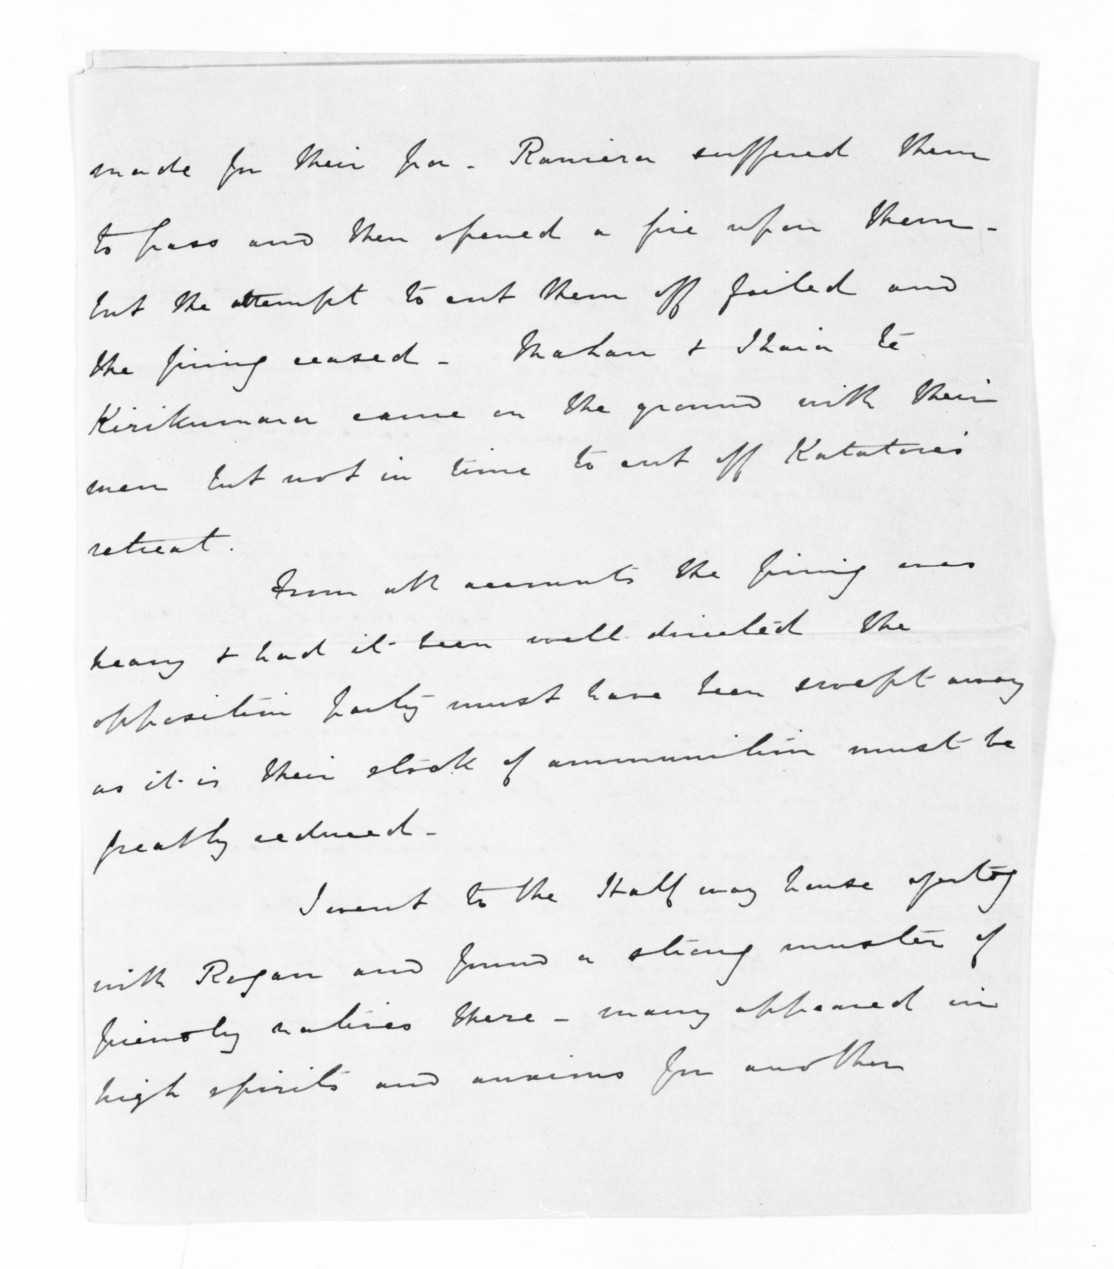 made for their pa - Raniera suffered them
to pass and then opened a fire upon them -
but the attempt to cut them off failed and
the firing ceased - Mahau & Ihaia te
Kirikumara came on the ground with their
men but not in time to cut off Katatore's
retreat.
From all accounts the firing was
heavy & had it been well directed the
opposition party must have been swept away
as it is their stock of ammunition must be
greatly reduced -
I went to the Half way house
with Rogan and found a strong muster of
friendly natives there - many appeared in
high spirits and anxious for another